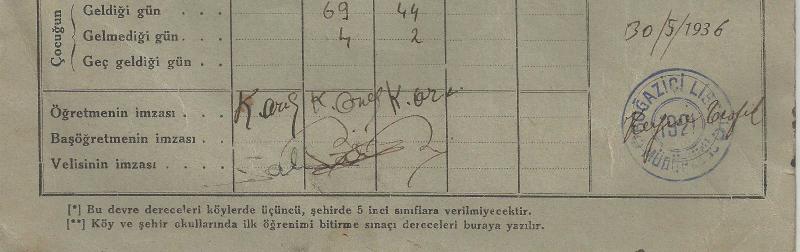 Çocuğun
Geldiği gün . . . 69 44
Gelmediği gün. . . 4 2
Geç geldiği gün . .
30/5/1936
Öğretmenin imzası .
Başöğretmenin imzası
Velisinin imzası . .
BOĞAZİÇİ
1921
[*] Bu devre dereceleri köylerde üçüncü, şehirde 5 inci sınıflara verilmiyecektir.
[**] Köy ve şehir okullarında ilk öğrenimi bitirme sınaçı dereceleri buraya yazılır.